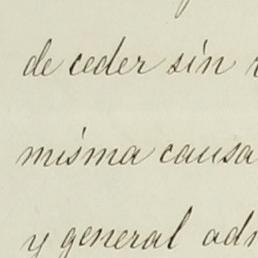 de ceder sin
misma causa
y general